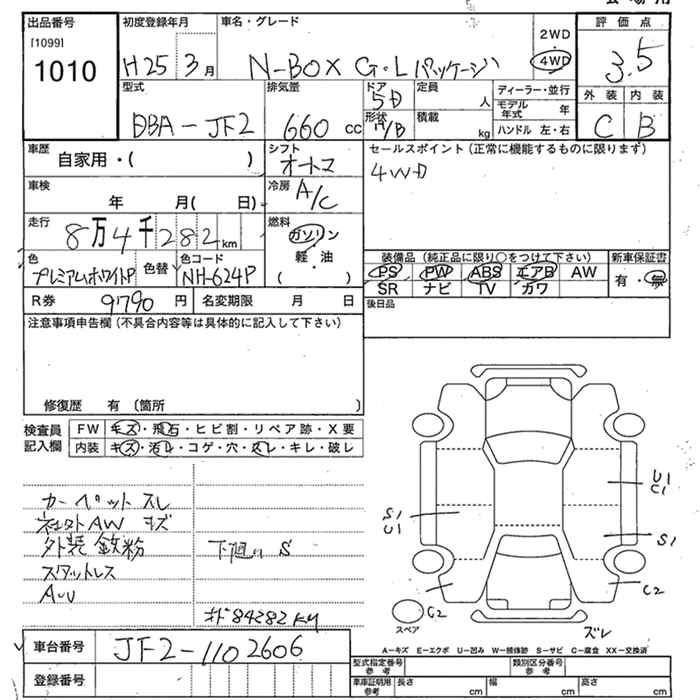 出品番号 初度登録年月 車名・グレード 評価点
[1099]
1010 H25 3月 N-BOX G・Lパッケージ 2WD 4WD 3.5
型式 排気量 ドア 定員 ディーラー・並行 外装 内装
DBA-JF2 660 cc 5D 人 モデル年式 年 C B
形状 積載 kg ハンドル 左・右
車歴 シフト セールスポイント(正常に機能するものに限ります)
自家用・( ) オートマ 4WD
車検 冷房
年 月( 日) A/C
走行 燃料
8万4千282km ガソリン
軽・油
( )
色 色替 色コード 装備品(純正品に限り○をつけて下さい) 新車保証書
プレミアムホワイトP NH-624P PS PW ABS エアB AW 有・無
SR ナビ TV カワ
R券 9790円 名変期限 月 日 後日品
注意事項申告欄(不具合内容等は具体的に記入して下さい)
修復歴 有 (箇所 )
検査員記入欄 FW キズ・飛石・ヒビ割・リペア跡・X要
内装 キズ・汚レ・コゲ・穴・スレ・キレ・破レ
カーペット スレ
AW キズ
外装 鉄粉 下廻り S
スタットレス
84282KM
U1
C1
S1
U1
S1
C2
C2
スペア
ズレ
A-キズ E-エクボ U-凹み W-補修跡 S-サビ C-腐食 XX-交換済
車台番号 JF2-1102606
登録番号
型式指定番号 参考 類別区分番号 参考
車庫証明用 参考 長さ cm 幅 cm 高さ cm